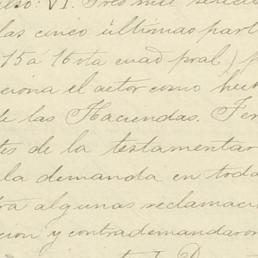 VI. Tres mil
las cinco últimas part
15 á 16 vta cuad pral) p
ciona el actor como hec
de las Haciendas. Fer
tes de la testamentar
la demanda en toda
ra algunas reclamaci
cion y contrademandaron